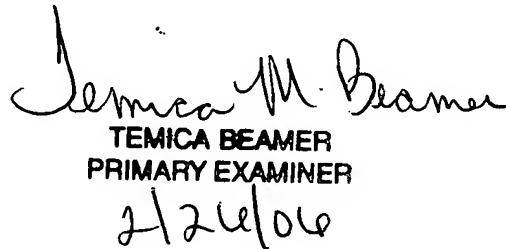 Temica M. Beamer
TEMICA BEAMER
PRIMARY EXAMINER
2/26/06